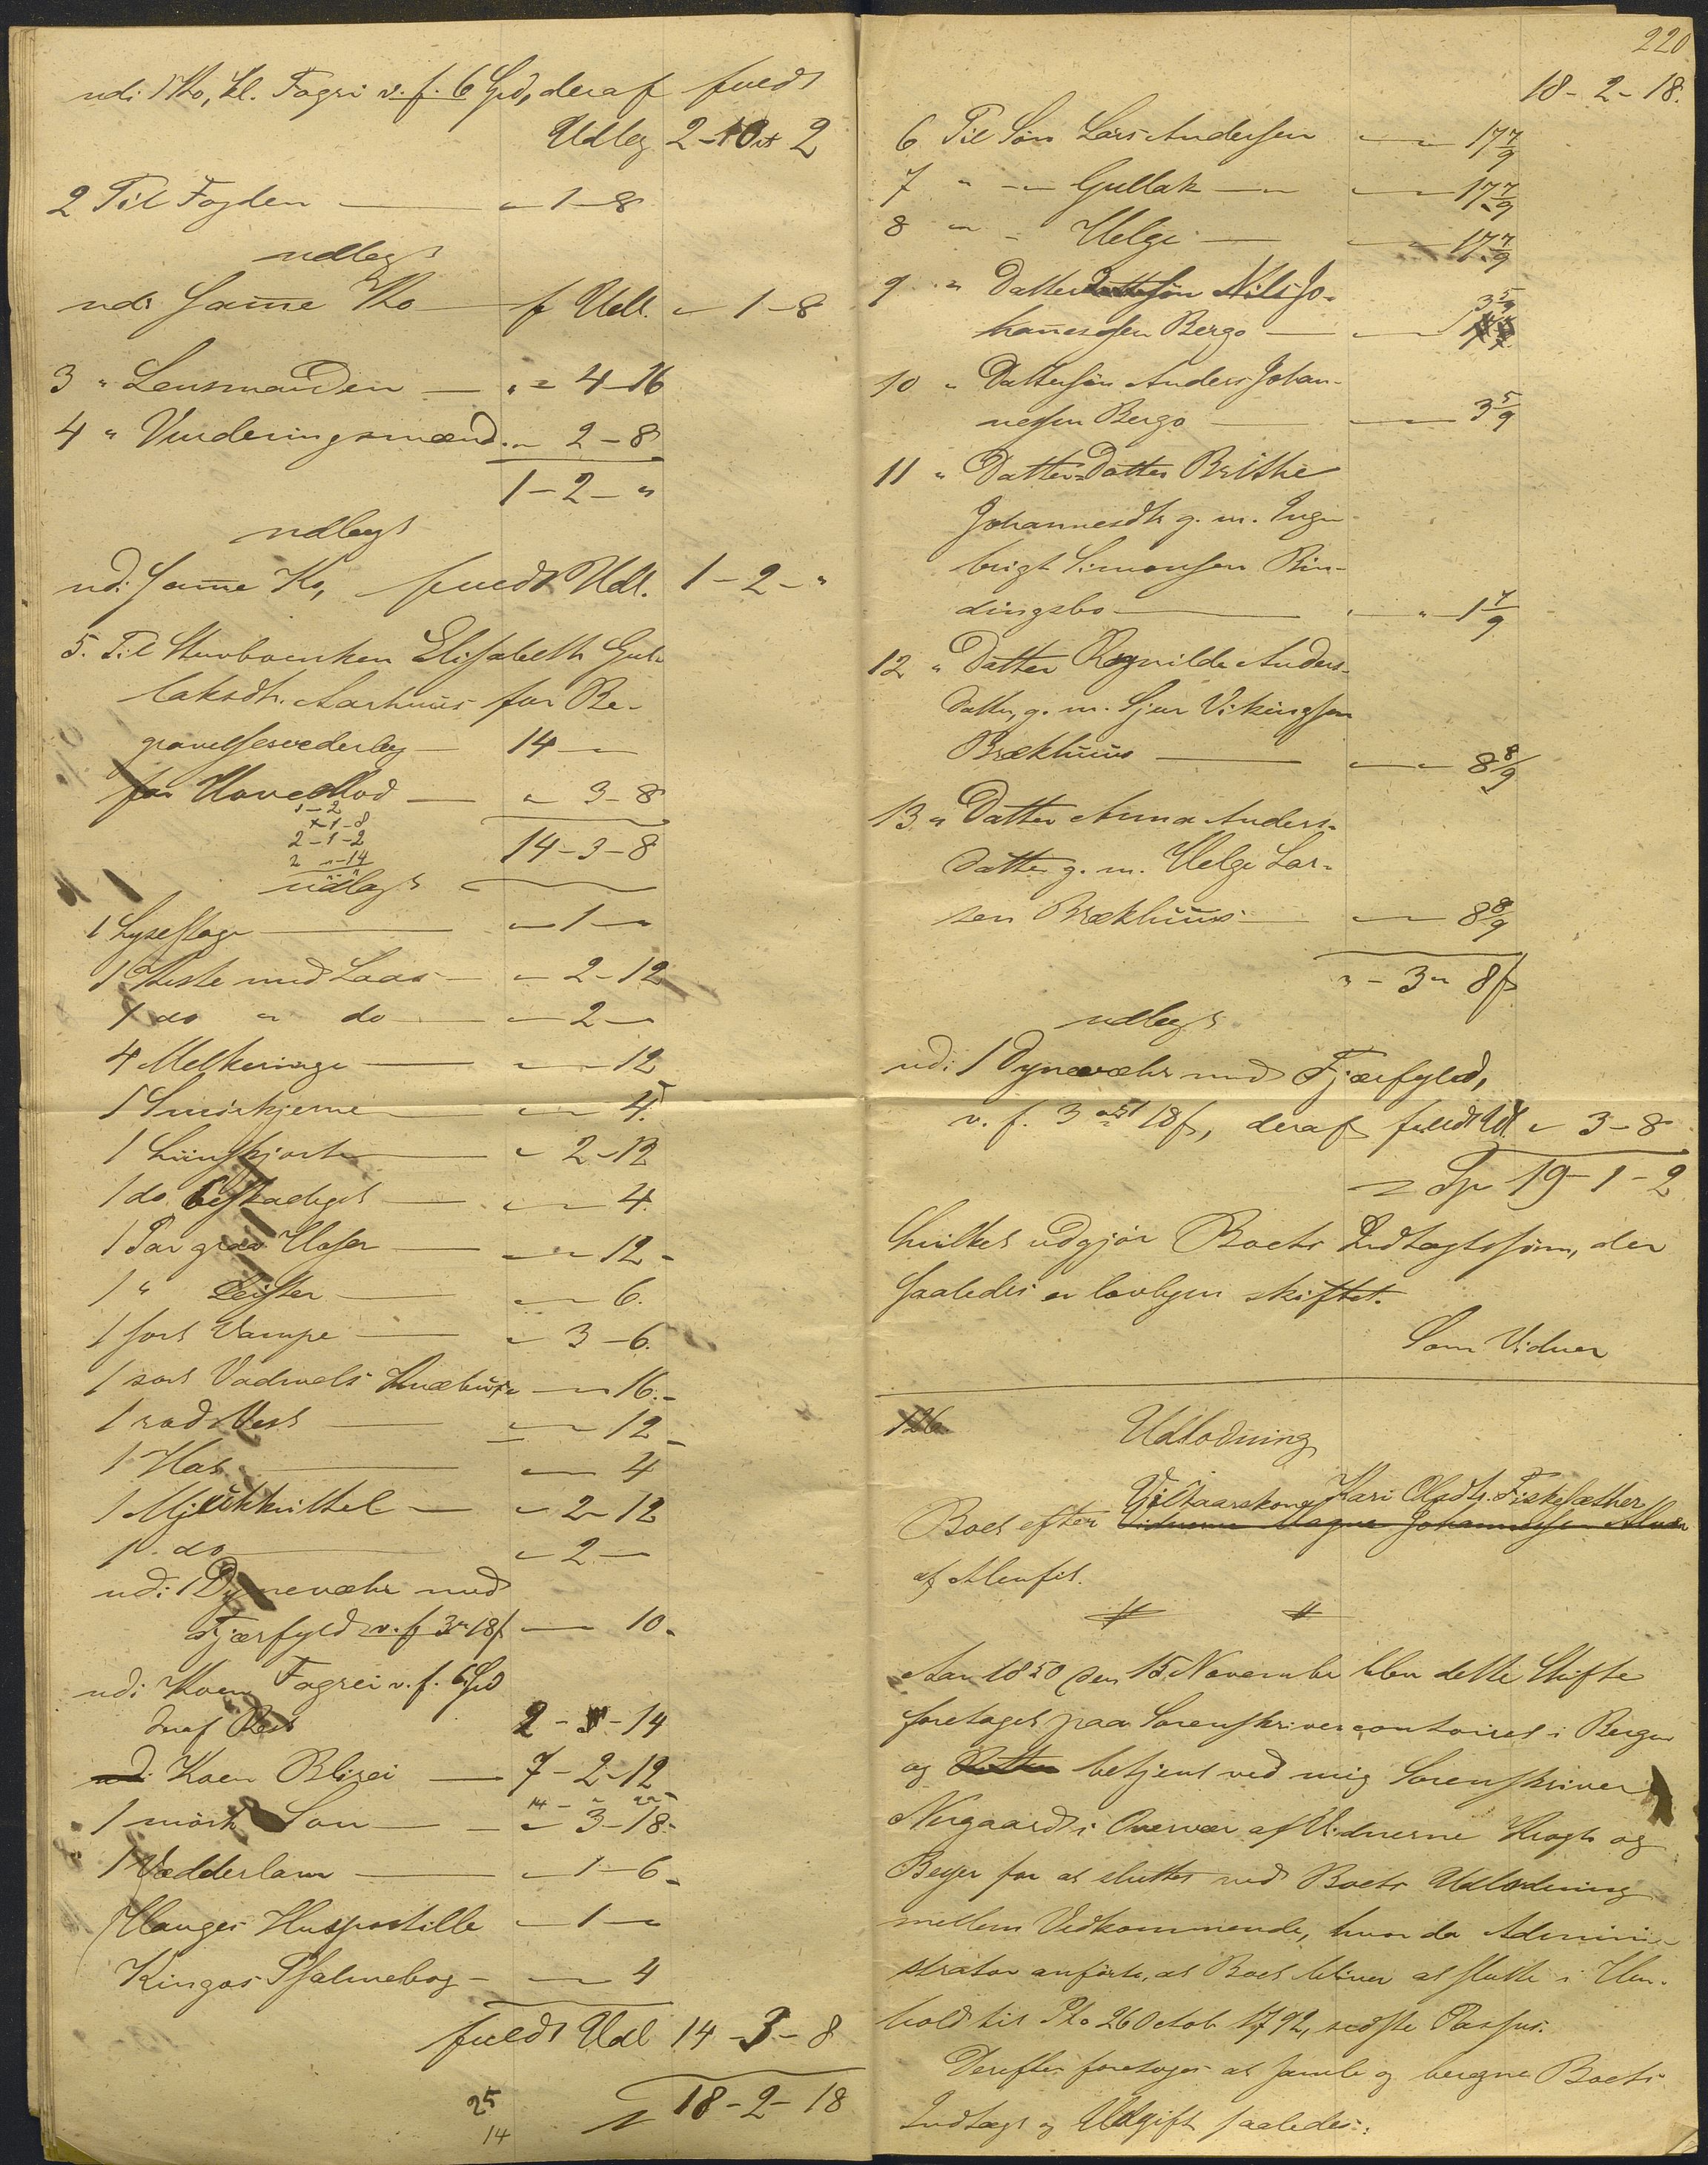 udi 1 Ko, kl. Fagri v. f. 6 Spd, deraf fuldt
Udlæg 2-1-2
2 Til Fogden — " 1-8
udlagt
udi samme Ko — f Udl. " 1-8
3 " Lensmanden — " " 4-16
4 " Vurderingsmænd. " 2-8
1-2-"
udlagt
udi samme Ko, fuldt Udl. 1-2-"
5. Til Sterboenken Elisabeth Gul-
laksdtr. Aarhuus for Be-
gravelsesvederlag — 14 —
for Hovedlod — " 3-8
1-2
1-8
2-1-2
2 "-14
14-3-8
udlagt
1 Lysestage — " 1 — "
1 Kiste med Laas — " 2-12
1 do " do — " 2 — "
4 Melkeringe — " " 12
1 Smörkjerne — " " 4.
1 Linskjorte — " 2-12
1 do beskadiget — " " 4.
1 Par graa Hoser — " " 12-
1 " Leister — " " 6.
1 sort Vampe — " 3-6.
1 sort Vadmels Knæbuxe — " 16.-
1 rød Vest — " " 12-
1 Hat — " " 4
1 Mjelkkittel — " 2-12
1 do — " 2 — "
udi 1 Dynevæhr med
Fjærfyld v. f. 3 " 18 f — " 10-
udi Koen Fagrei v. f. 6 Spd
deraf Rest 2-"-14
Koen Blirei — 7-2-12
1 mörk Sou — " 3-18-
1 Vædderlam — " 1-6-
Hauges Huspostille — " 1 — "
Kingos Psalmebog — " " 4
fuldt Udl 14-3-8
25
14
18-2-18
220
18-2-18.
6 Til Sön Lars Andersen — " 17 7/9
7 " — Gullak — " 17 7/9
8 " — Helge — " 17 7/9
9 " Dattersön Nils Jo-
hannessen Bergo — " 3 5/9
10 " Dattersön Anders Johan-
nessen Bergo — " 3 5/9
11 " Datter-Datter Brithe
Johannesdtr g. m. Inge-
brigt Simonsen Rin-
dingsbo — " " 1 7/9
12 " Datter Ragnilde Anders-
datter, g. m. Sjur Vikingsen
Brækhuus — " " 8 8/9
13 " Datter Anna Anders-
datter g. m. Helge Lar-
sen Brækhuus — " 8 8/9
" - 3 " 8 f
udlagt
udi 1 Dynevæhr med Fjærfyld,
v. f. 3 ort 18 f, deraf fuldt Udl. " 3-8
Spd 19-1-2
hvilket udgjör Boets Indtægtssum, der
saaledes er lovligen skiftet.
Som Vidner
126.
Udlodning
Vilkaarskone Kari Olsdtr. Fiskesæther
Boet efter Vidnerne Magne Johannessen
af Alenfit.
Aar 1850 den 15 November blev dette Skifte
foretaget paa Sorenskrivercontoiret i Bergen
og Retten betjent ved mig Sorenskriver
Nergaard i Overvær af Vidnerne Krogh og
Beyer for at sluttes med Boets Udlodning
mellem Vedkommende, hvor da Admini-
strator anförte, at Boet bliver at slutte i Hen-
hold til Pto 26 Octob 1792, sidste Passus.
Derefter foretoges at samle og beregne Boets
Indtægt og Udgift saaledes: